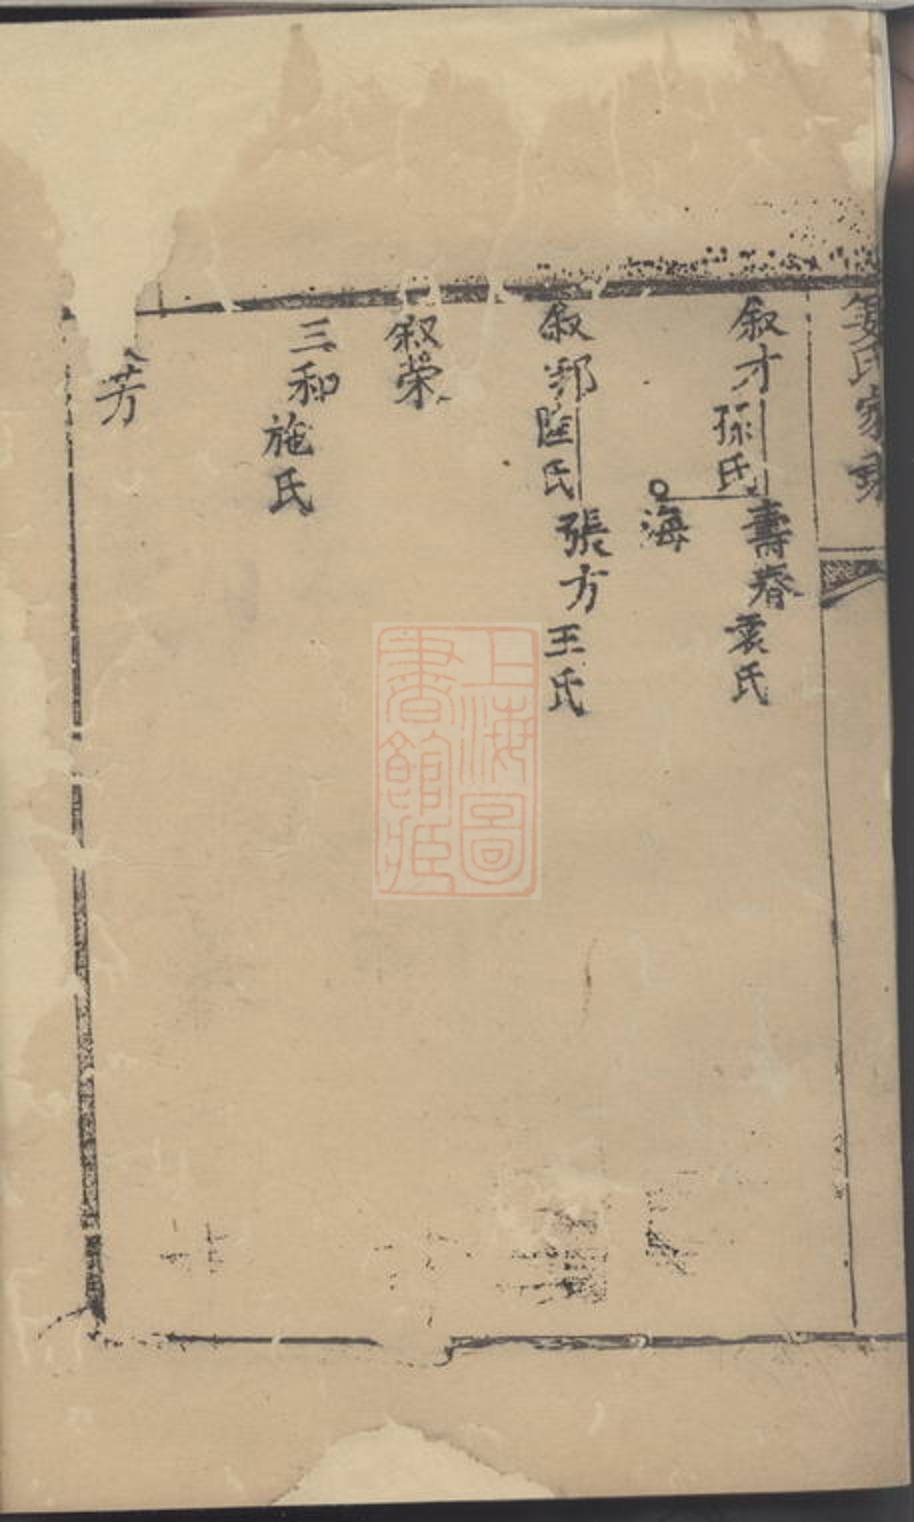 氏家
叙才 孫氏 壽春 袁氏
海
叙邦 氏 張方 王氏
叙榮
三和 施氏
芳
上海圖
書館藏